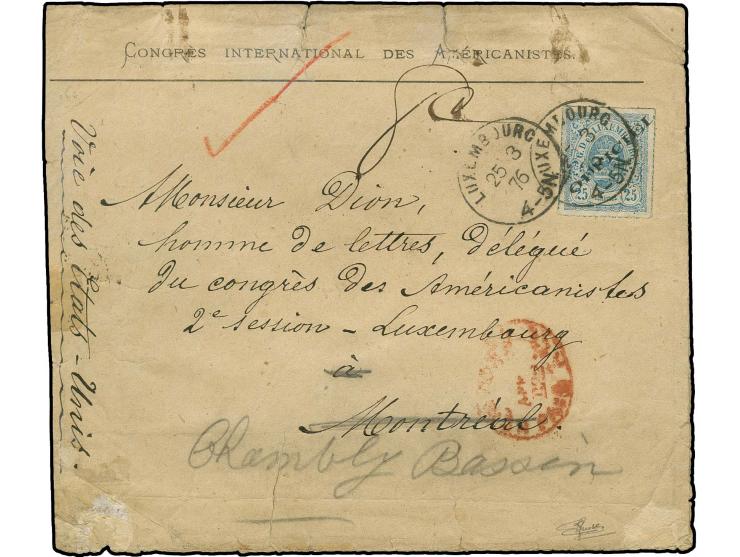 CONGRÈS INTERNATIONAL DES AMÉRICANISTES.
LUXEMBOURG
25 3
76
4-5N
LUXEMBOURG
3
4-5N
25 25
Monsieur Dion,
homme de lettres, délégué
du congrès des Américanistes
2e session - Luxembourg
à
Montréal.
Chambly Bassin
Voie des États-Unis.